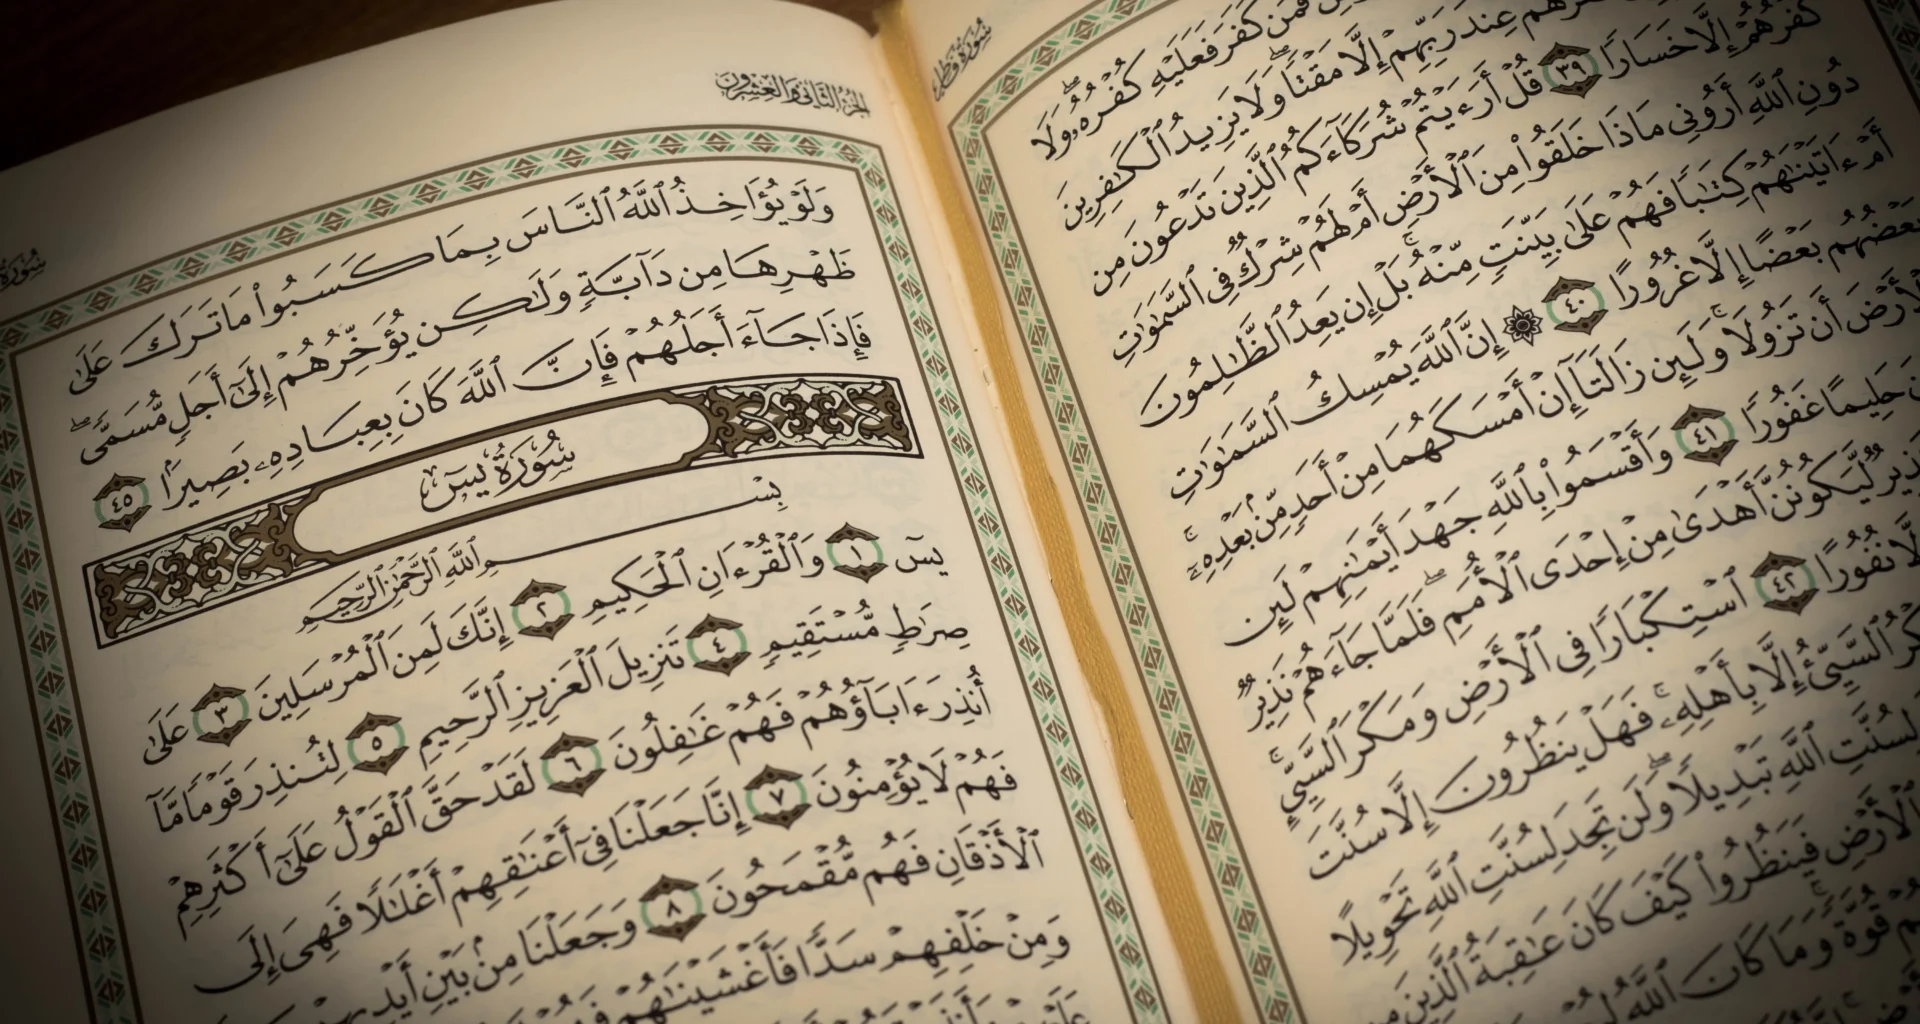 سُورَةُ فَاطِرٍ
كَفَرَ فَعَلَيْهِ كُفْرُهُۥۖ وَلَا
عِندَ رَبِّهِمْ إِلَّا مَقْتًاۖ وَلَا يَزِيدُ ٱلْكَٰفِرِينَ
كُفْرُهُمْ إِلَّا خَسَارًا ٣٩ قُلْ أَرَءَيْتُمْ شُرَكَآءَكُمُ ٱلَّذِينَ تَدْعُونَ مِن
دُونِ ٱللَّهِ أَرُونِى مَاذَا خَلَقُوا۟ مِنَ ٱلْأَرْضِ أَمْ لَهُمْ شِرْكٌ فِى ٱلسَّمَٰوَٰتِ
أَمْ ءَاتَيْنَٰهُمْ كِتَٰبًا فَهُمْ عَلَىٰ بَيِّنَتٍ مِّنْهُۚ بَلْ إِن يَعِدُ ٱلظَّٰلِمُونَ
بَعْضُهُم بَعْضًا إِلَّا غُرُورًا ٤٠ ۞ إِنَّ ٱللَّهَ يُمْسِكُ ٱلسَّمَٰوَٰتِ
أَن تَزُولَاۚ وَلَئِن زَالَتَآ إِنْ أَمْسَكَهُمَا مِنْ أَحَدٍ مِّنۢ بَعْدِهِۦٓۚ
حَلِيمًا غَفُورًا ٤١ وَأَقْسَمُوا۟ بِٱللَّهِ جَهْدَ أَيْمَٰنِهِمْ لَئِن
لَّيَكُونُنَّ أَهْدَىٰ مِنْ إِحْدَى ٱلْأُمَمِۖ فَلَمَّا جَآءَهُمْ نَذِيرٌ
نُفُورًا ٤٢ ٱسْتِكْبَارًا فِى ٱلْأَرْضِ وَمَكْرَ ٱلسَّيِّئِۚ
ٱلسَّيِّئُ إِلَّا بِأَهْلِهِۦۚ فَهَلْ يَنظُرُونَ إِلَّا سُنَّتَ
لِسُنَّتِ ٱللَّهِ تَبْدِيلًاۖ وَلَن تَجِدَ لِسُنَّتِ ٱللَّهِ تَحْوِيلًا
ٱلْأَرْضِ فَيَنظُرُوا۟ كَيْفَ كَانَ عَٰقِبَةُ ٱلَّذِينَ مِن
قُوَّةًۚ وَمَا كَانَ ٱللَّهُ
ٱلْجُزْءُ ٱلثَّانِى وَٱلْعِشْرُونَ
سُورَةُ
وَلَوْ يُؤَاخِذُ ٱللَّهُ ٱلنَّاسَ بِمَا كَسَبُوا۟ مَا تَرَكَ عَلَىٰ
ظَهْرِهَا مِن دَآبَّةٍ وَلَٰكِن يُؤَخِّرُهُمْ إِلَىٰٓ أَجَلٍ مُّسَمًّىۖ
فَإِذَا جَآءَ أَجَلُهُمْ فَإِنَّ ٱللَّهَ كَانَ بِعِبَادِهِۦ بَصِيرًۢا ٤٥
سُورَةُ يسٓ
بِسْمِ ٱللَّهِ ٱلرَّحْمَٰنِ ٱلرَّحِيمِ
يسٓ ١ وَٱلْقُرْءَانِ ٱلْحَكِيمِ ٢ إِنَّكَ لَمِنَ ٱلْمُرْسَلِينَ ٣ عَلَىٰ
صِرَٰطٍ مُّسْتَقِيمٍ ٤ تَنزِيلَ ٱلْعَزِيزِ ٱلرَّحِيمِ ٥ لِتُنذِرَ قَوْمًا مَّآ
أُنذِرَ ءَابَآؤُهُمْ فَهُمْ غَٰفِلُونَ ٦ لَقَدْ حَقَّ ٱلْقَوْلُ عَلَىٰٓ أَكْثَرِهِمْ
فَهُمْ لَا يُؤْمِنُونَ ٧ إِنَّا جَعَلْنَا فِىٓ أَعْنَٰقِهِمْ أَغْلَٰلًا فَهِىَ إِلَى
ٱلْأَذْقَانِ فَهُم مُّقْمَحُونَ ٨ وَجَعَلْنَا مِنۢ بَيْنِ
وَمِنْ خَلْفِهِمْ سَدًّا فَأَغْشَيْنَٰهُمْ